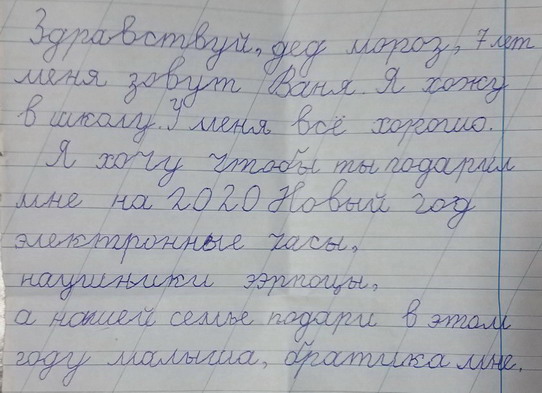 Здравствуй, дед мороз, 7 лет
меня зовут Ваня. Я хожу
в школу. У меня всё хорошо.
Я хочу чтобы ты подарил
мне на 2020 Новый год
электронные часы,
наушники ээрпоцы,
а нашей семье подари в этом
году малыша, братика мне.